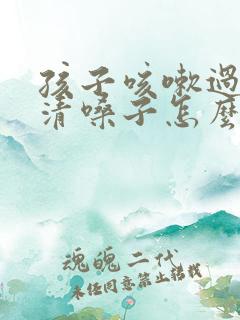 孩子咳嗽過
清嗓子怎麽
魂魄二代
未经同意禁止转载